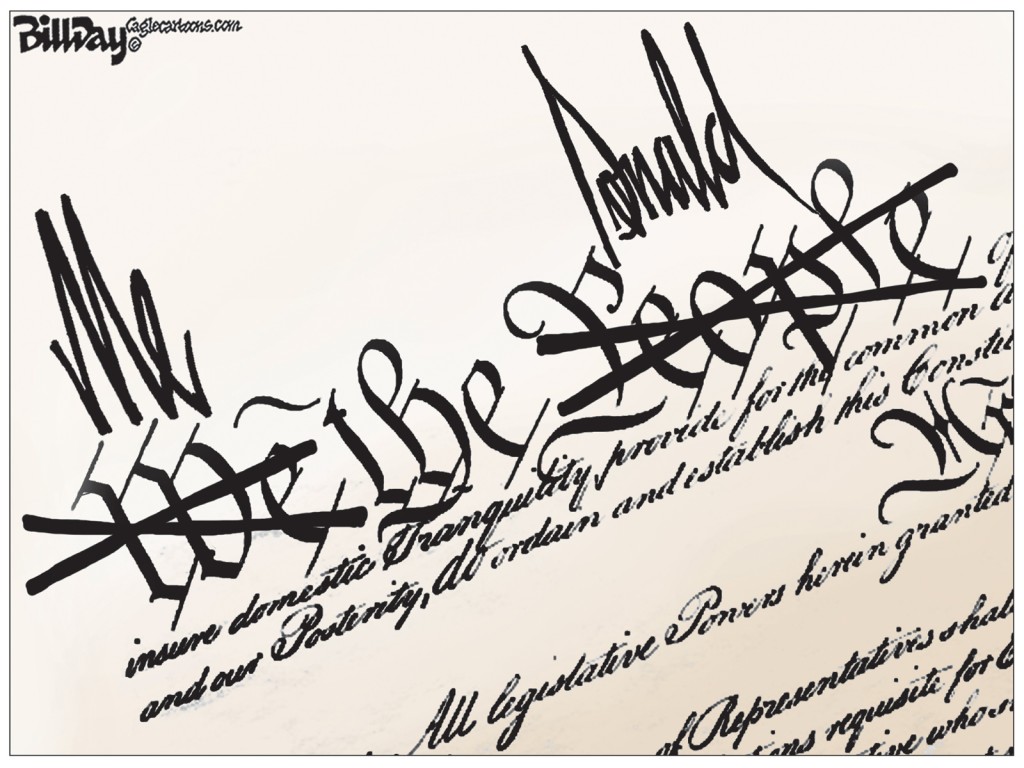 BillDay
©
Caglecartoons.com
Me
Donald
We the People
insure domestic Tranquility, provide for the common
and our Posterity, do ordain and establish this Constit
All legislative Powers herein granted
of Representatives shall
requisite for
who